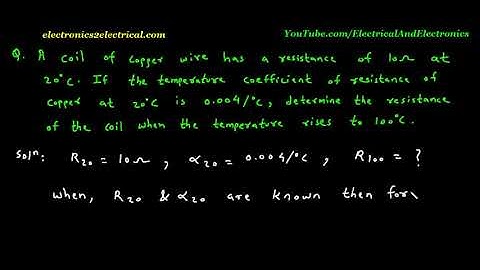 electronics2electrical.com
YouTube.com/ElectricalAndElectronics
Q. A coil of copper wire has a resistance of 10Ω at
20°C. If the temperature coefficient of resistance of
copper at 20°C is 0.004/°C, determine the resistance
of the coil when the temperature rises to 100°C.
Soln: R20 = 10Ω , α20 = 0.004/°C , R100 = ?
when, R20 & α20 are known then for